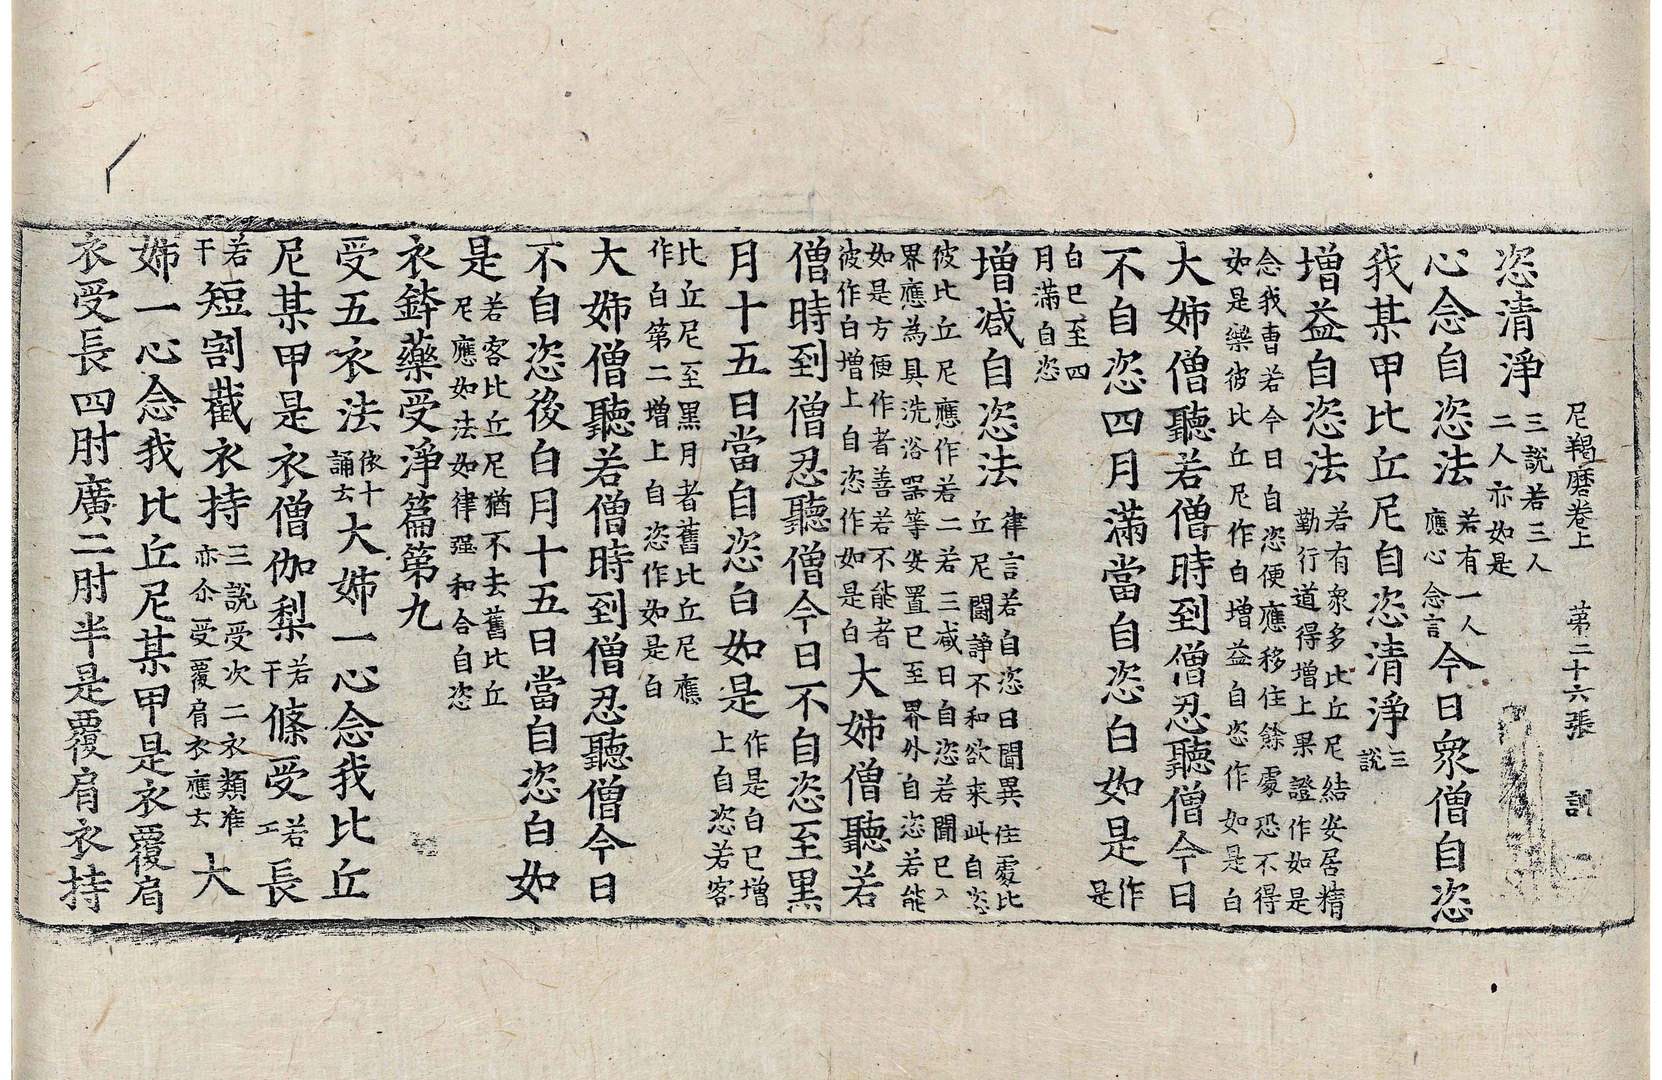 尼羯磨卷上 第二十六張 訓
恣清淨三說若三人二人亦如是
心念自恣法若有一人應心念言今日眾僧自恣
我某甲比丘尼自恣清淨三說
增益自恣法若有眾多比丘尼結安居精勤行道得增上果證作如是
念我曹若今日自恣便應移住餘處恐不得如是樂彼比丘尼作白增益自恣作如是白
大姊僧聽若僧時到僧忍聽僧今日
不自恣四月滿當自恣白如是作是
白已至四月滿自恣
增減自恣法律言若自恣日聞異住處比丘尼鬪諍不和欲來此自恣
彼比丘尼應作若二若三減日自恣若聞已入界應為具洗浴器等安置已至界外自恣若能
如是方便作者善若不能者彼作白增上自恣作如是白大姊僧聽若
僧時到僧忍聽僧今日不自恣至黑
月十五日當自恣白如是作是白已增上自恣若客
比丘尼至黑月者舊比丘尼應作白第二增上自恣作如是白
大姊僧聽若僧時到僧忍聽僧今日
不自恣後白月十五日當自恣白如
是若客比丘尼猶不去舊比丘尼應如法如律强和合自恣
衣鉢藥受淨篇第九
受五衣法依十誦云大姊一心念我比丘
尼某甲是衣僧伽梨若干條受若工長
若干短割截衣持三說受次二衣類准亦尒受覆肩衣應云大
姊一心念我比丘尼某甲是衣覆肩
衣受長四肘廣二肘半是覆肩衣持